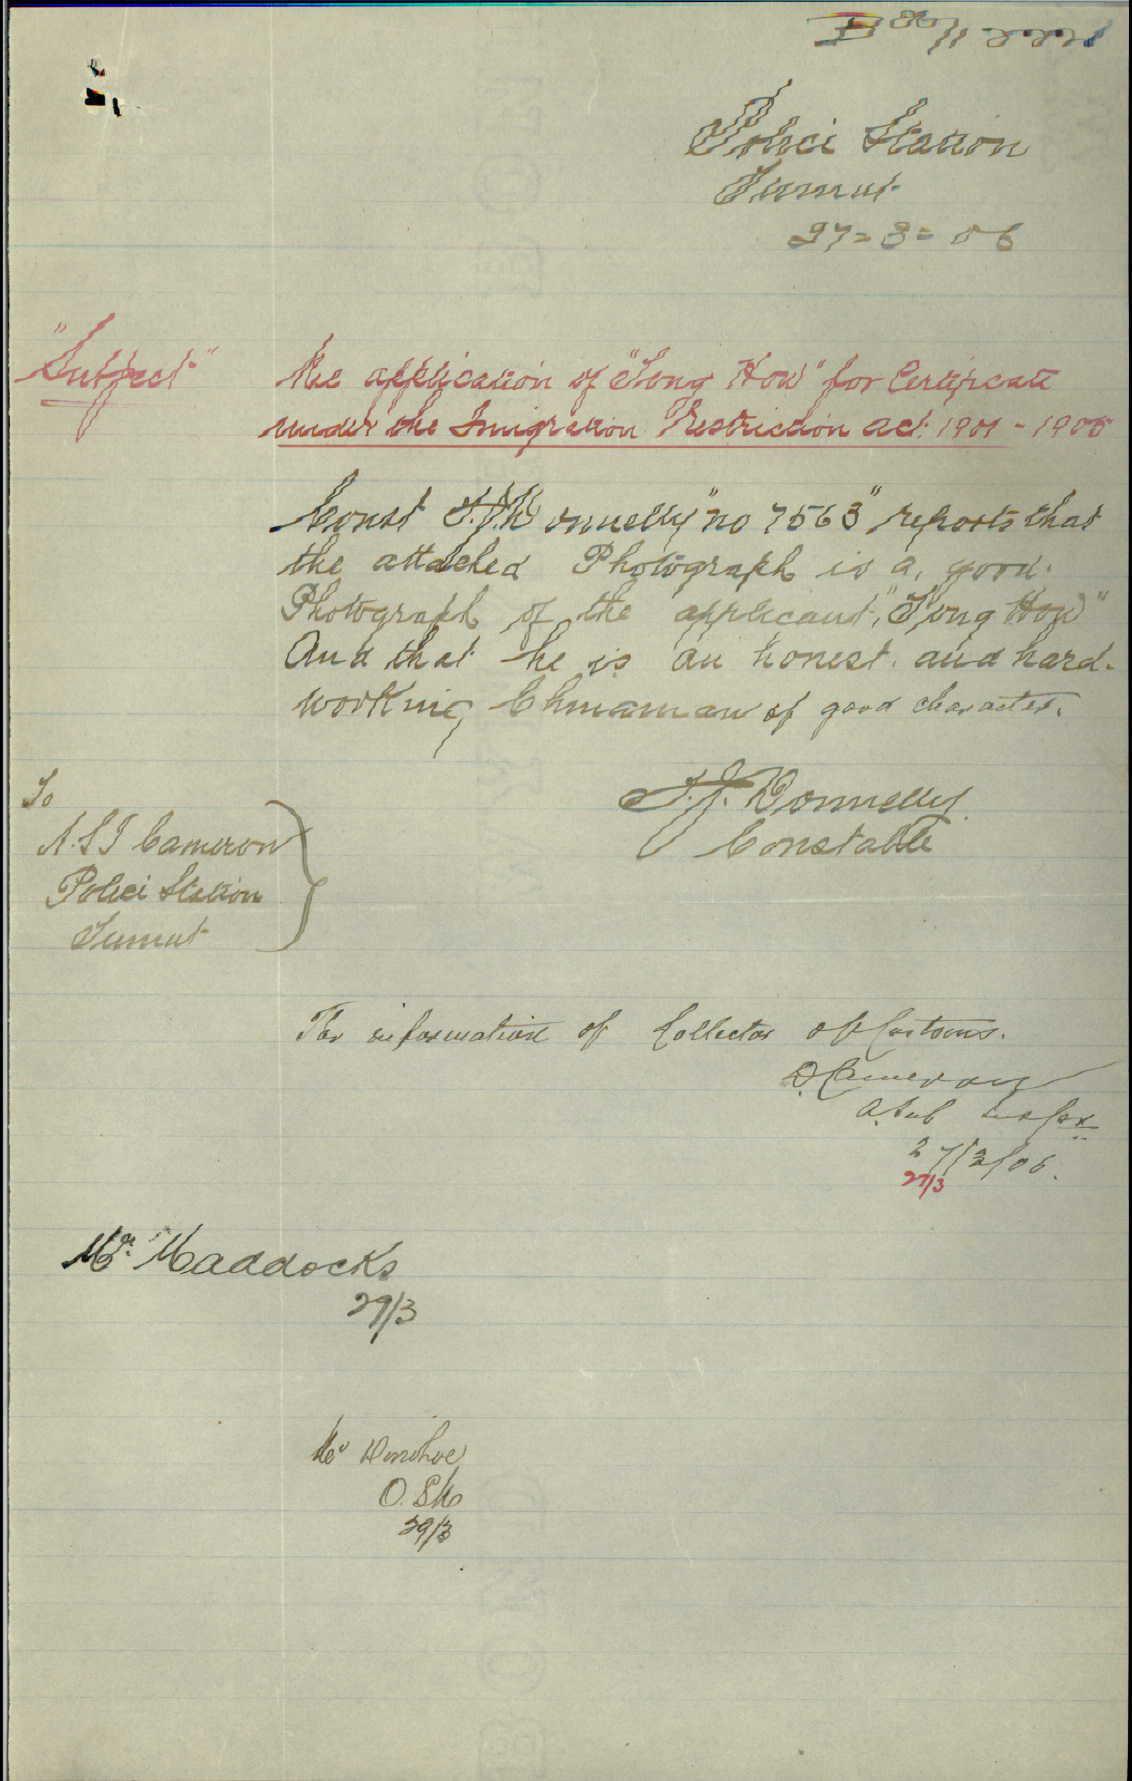 Police Station
Tumut
27=3=06
"Subject" the application of "Tong How" for Certificate
under the Imigration Restriction act. 1901 - 1905
Const T.J. Donnelly "no 7563" reports that
the attached Photograph is a, good.
Photograph of the applicant, "Tong How"
And that he is an honest. and hard-
working Chinaman of good character.
T.J. Donnelly.
Constable
To
A.S.I Cameron
Police Station
Tumut
For information of Collector of Customs.
D Cameron
A. Sub Inspr
27/3/06.
27/3
Mr. Maddocks
29/3
Mr Donohoe
29/3